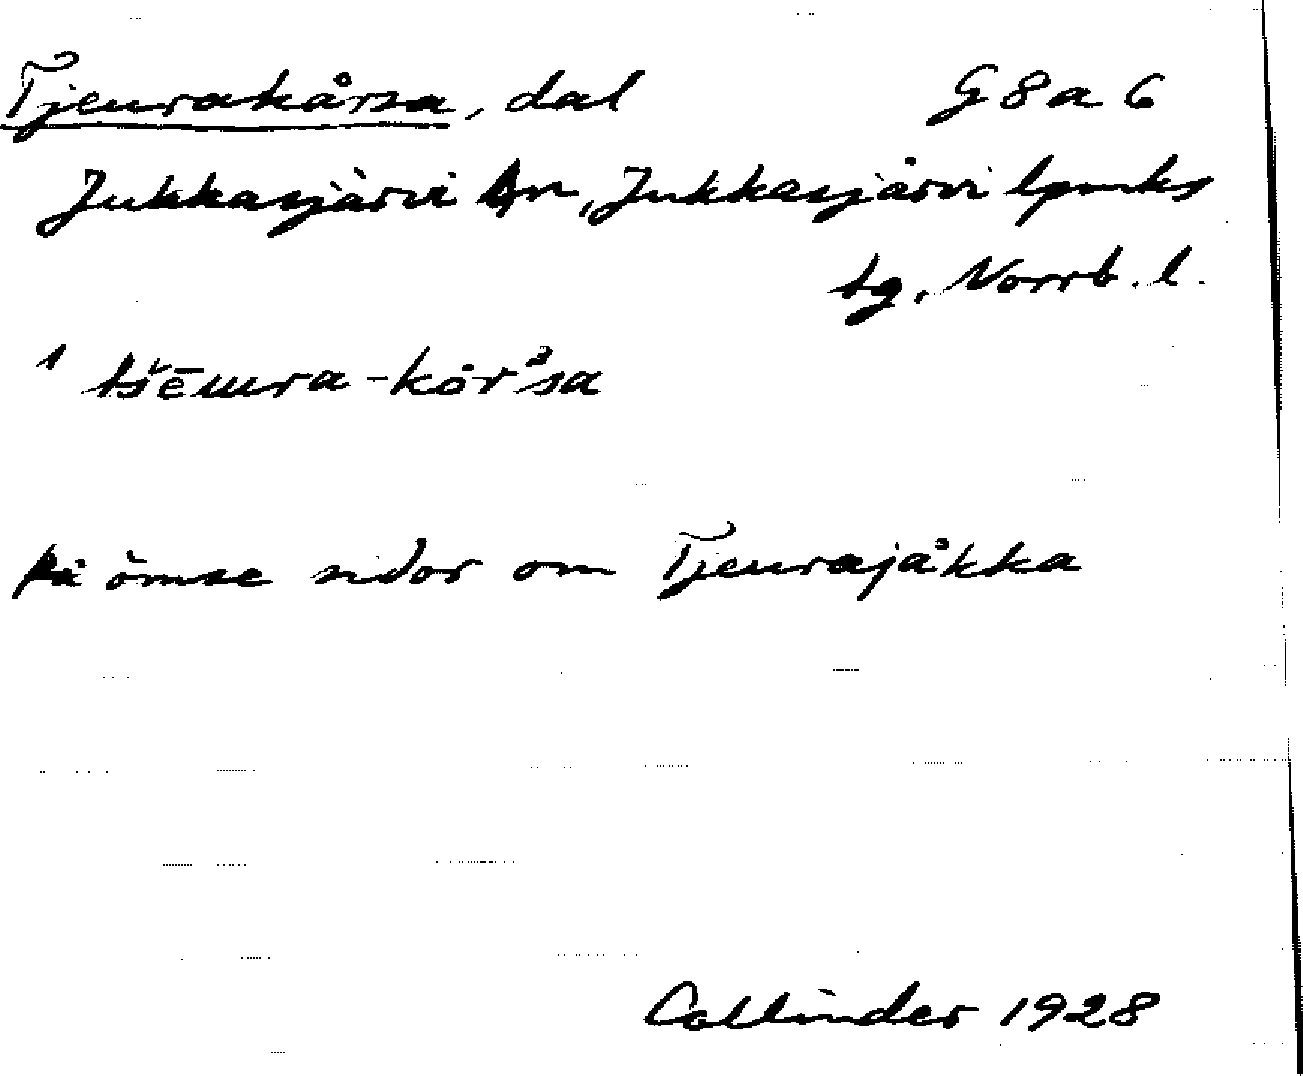 Tjeurakårsa, dal G8a6
Jukkasjärvi sn, Jukkasjärvi lpmks
tg, Norrb. l.
1 tšēura-kår²sa
På ömse sidor om Tjeurajåkka
Collinder 1928